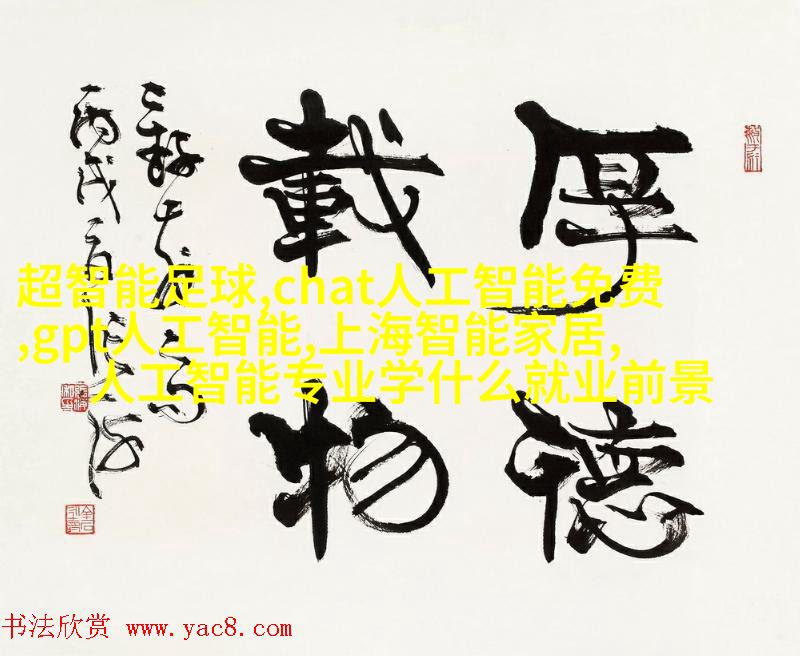 厚德
載物
丙戌
超智能足球,chat人工智能免费
,gpt人工智能,上海智能家居,
人工智能专业学什么就业前景
书法欣赏 www.yac8.com